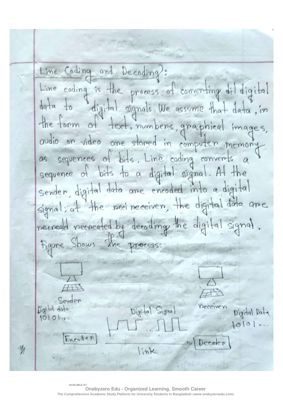 Line Coding and Decoding:
Line coding is the process of converting digital
data to digital signals. We assume that data, in
the form of text, numbers, graphical images,
audio or video are stored in computer memory
as sequences of bits. Line coding converts a
sequence of bits to a digital signal. At the
sender, digital data are encoded into a digital
signal; at the receiver, the digital data are
recreated by decoding the digital signal.
Figure Shows the process:
Sender
Receiver
Digital data
Digital Signal
Digital Data
10101...
10101...
Encoder
Decoder
link
Onebyzero Edu - Organized Learning, Smooth Career
The Comprehensive Academic Study Platform for University Students in Bangladesh (www.onebyzeroedu.com)